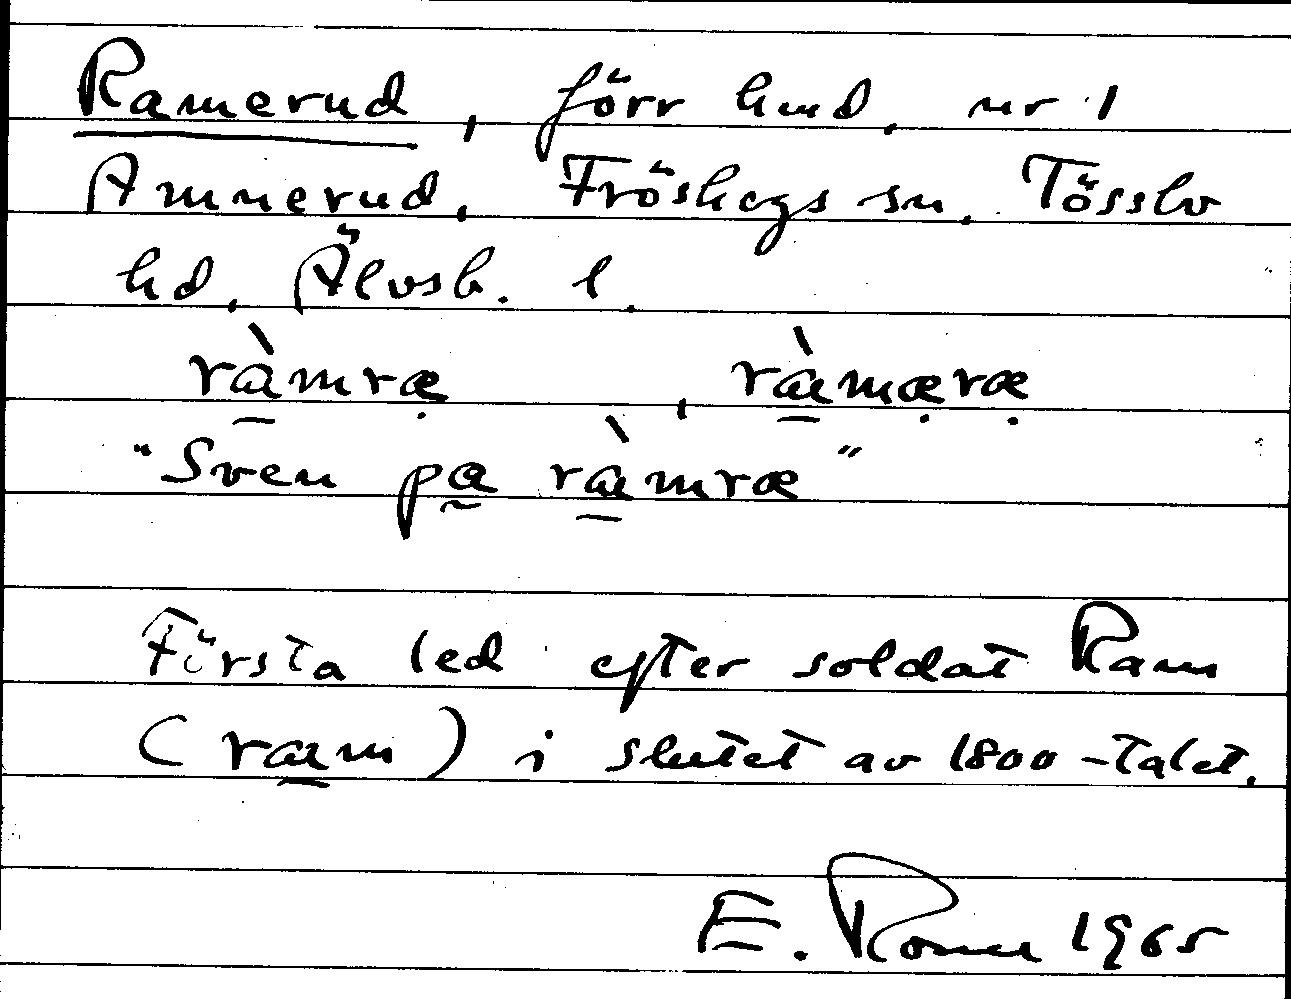 Ramerud, förr hmd. nr 1
Amnerud, Fröskogs sn, Tössbo
hd, Älvsb. l.
ràmræ, ràmæræ
"Sven pa ràmræ"
Första led efter soldat Ram
(ram) i slutet av 1800-talet.
E. Rome 1965